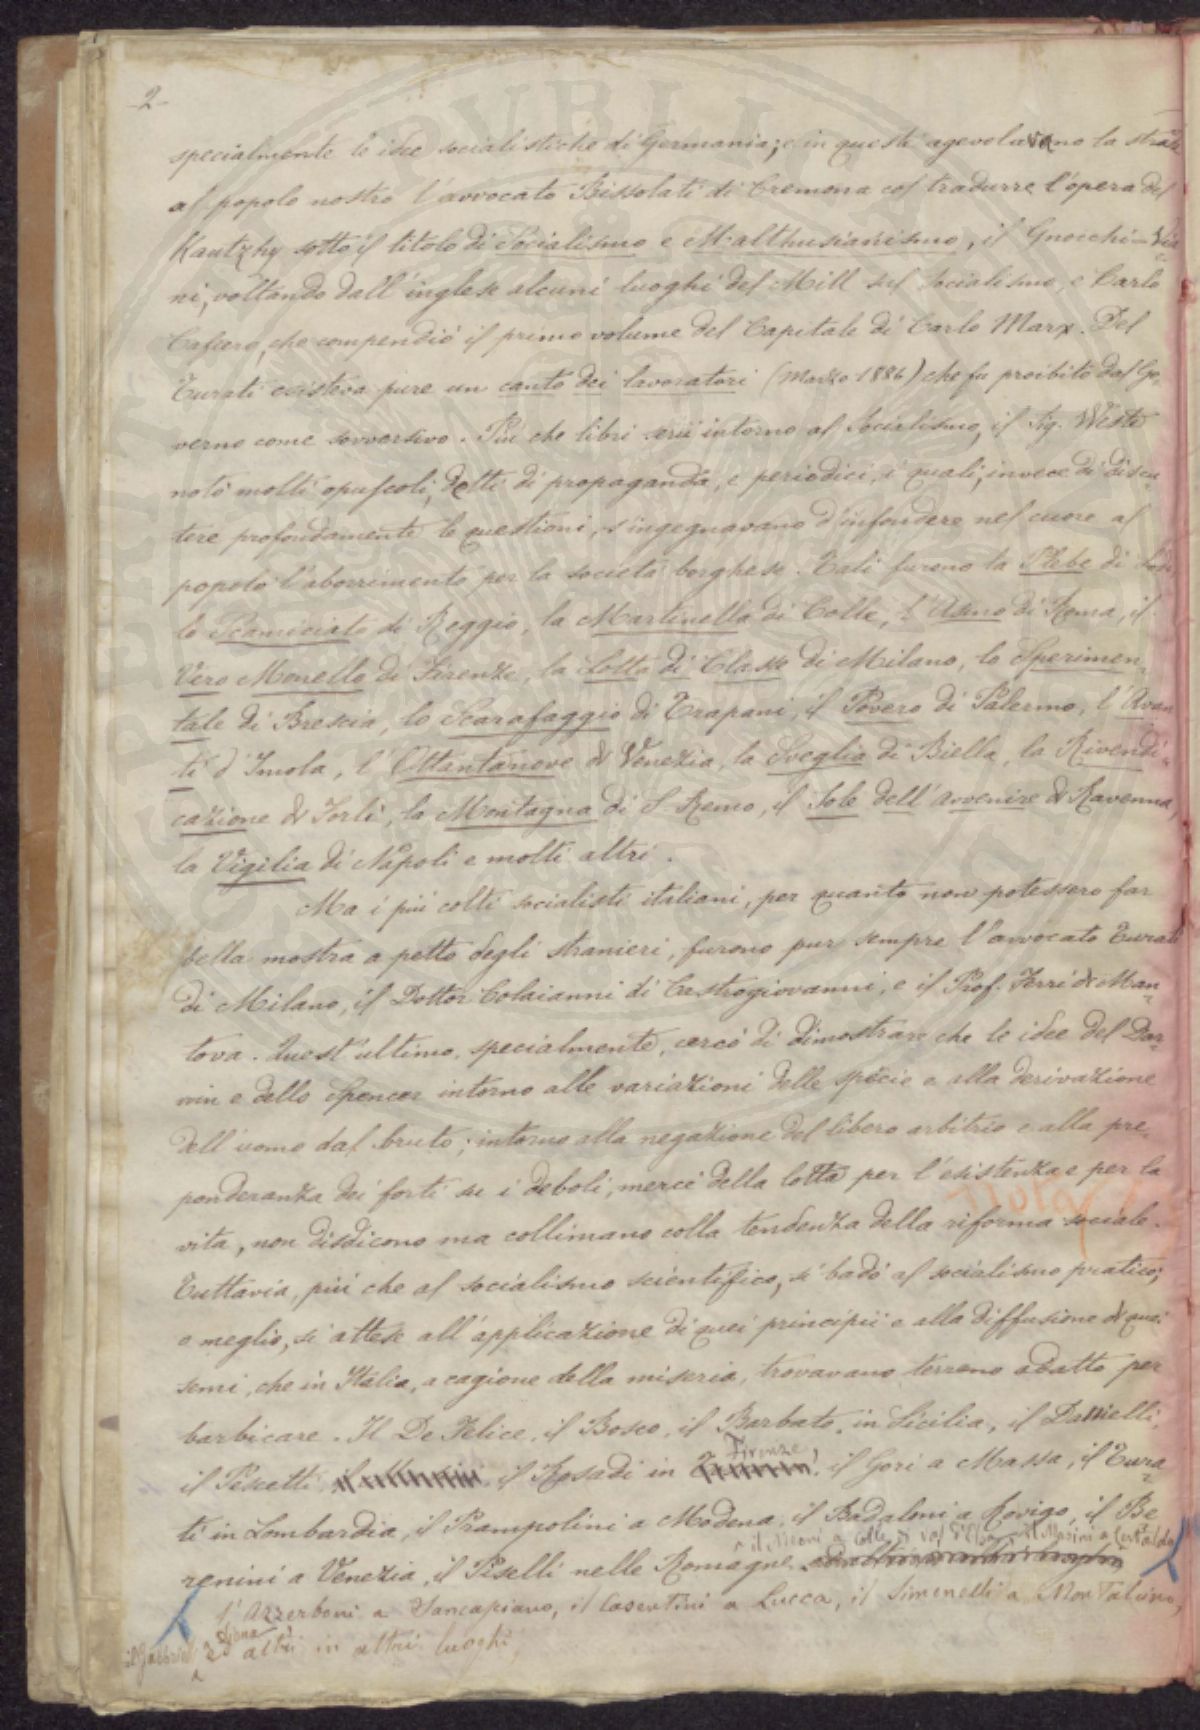 2
specialmente le idee socialistiche di Germania; e in questi agevolavano la strada
al popolo nostro l'avvocato Bissolati di Cremona col tradurre l'opera del
Kautzhy sotto il titolo di Socialismo e Malthusianismo, il Gnocchi=Via=
ni, voltando dall'inglese alcuni luoghi del Mill sul socialismo, e Carlo
Cafiero, che compendiò il primo volume del Capitale di Carlo Marx. Del
Turati esisteva pure un canto dei lavoratori (Marzo 1886) che fu proibito dal Go=
verno come sovversivo. Più che libri serii intorno al Socialismo, il Sig. Weste
notò molti opuscoli, detti di propaganda, e periodici, i quali, invece di discu=
tere profondamente le questioni, s'ingegnavano d'infondere nel cuore al
popolo l'aborrimento per la società borghese. Tali furono la Plebe di Lodi
lo Scamiciato di Reggio, la Martinella di Colle, l'Asino di Roma, il
Vero Monello di Firenze, la Lotta di Classe di Milano, lo Sperimen=
tale di Brescia, lo Scarafaggio di Trapani, il Povero di Palermo, l'Avan
ti d'Imola, l'Ottantanove di Venezia, la Sveglia di Biella, la Rivendi=
cazione di Forlì, la Montagna di S. Remo, il Sole dell'avvenire di Ravenna,
la Vigilia di Napoli e molti altri.
Ma i più colti socialisti italiani, per quanto non potessero far
bella mostra a petto degli stranieri, furono pur sempre l'avvocato Turati
di Milano, il Dottor Colaianni di Castrogiovanni, e il Prof. Ferri di Man=
tova. Quest'ultimo, specialmente, cercò di dimostrare che le idee del Dar=
win e dello Spencer intorno alle variazioni delle specie e alla derivazione
dell'uomo dal bruto; intorno alla negazione del libero arbitrio e alla pre=
ponderanza dei forti su i deboli, mercè della lotta per l'esistenza e per la
vita, non disdicono ma collimano colla tendenza della riforma sociale.
Tuttavia, più che al socialismo scientifico, si badò al socialismo pratico;
o meglio, si attese all'applicazione di quei principii e alla diffusione di quei
semi, che in Italia, a cagione della miseria, trovavano terreno adatto per
barbicare. Il De Felice, il Bosco, il Barbato, in Sicilia, il Danielli,
il Pescetti, il Rosadi in Firenze, il Gori a Massa, il Tura=
ti in Lombardia, il Prampolini a Modena, il Badaloni a Rovigo, il Be
renini a Venezia, il Piselli nelle Romagne, il Meoni a Colle di val d'Elsa, il Masini a Certaldo
l'Azzerboni a Sancapiano, il Casentini a Lucca, il Simonelli a Montalcino,
il Gabbrielli a Siena e altri in altri luoghi,